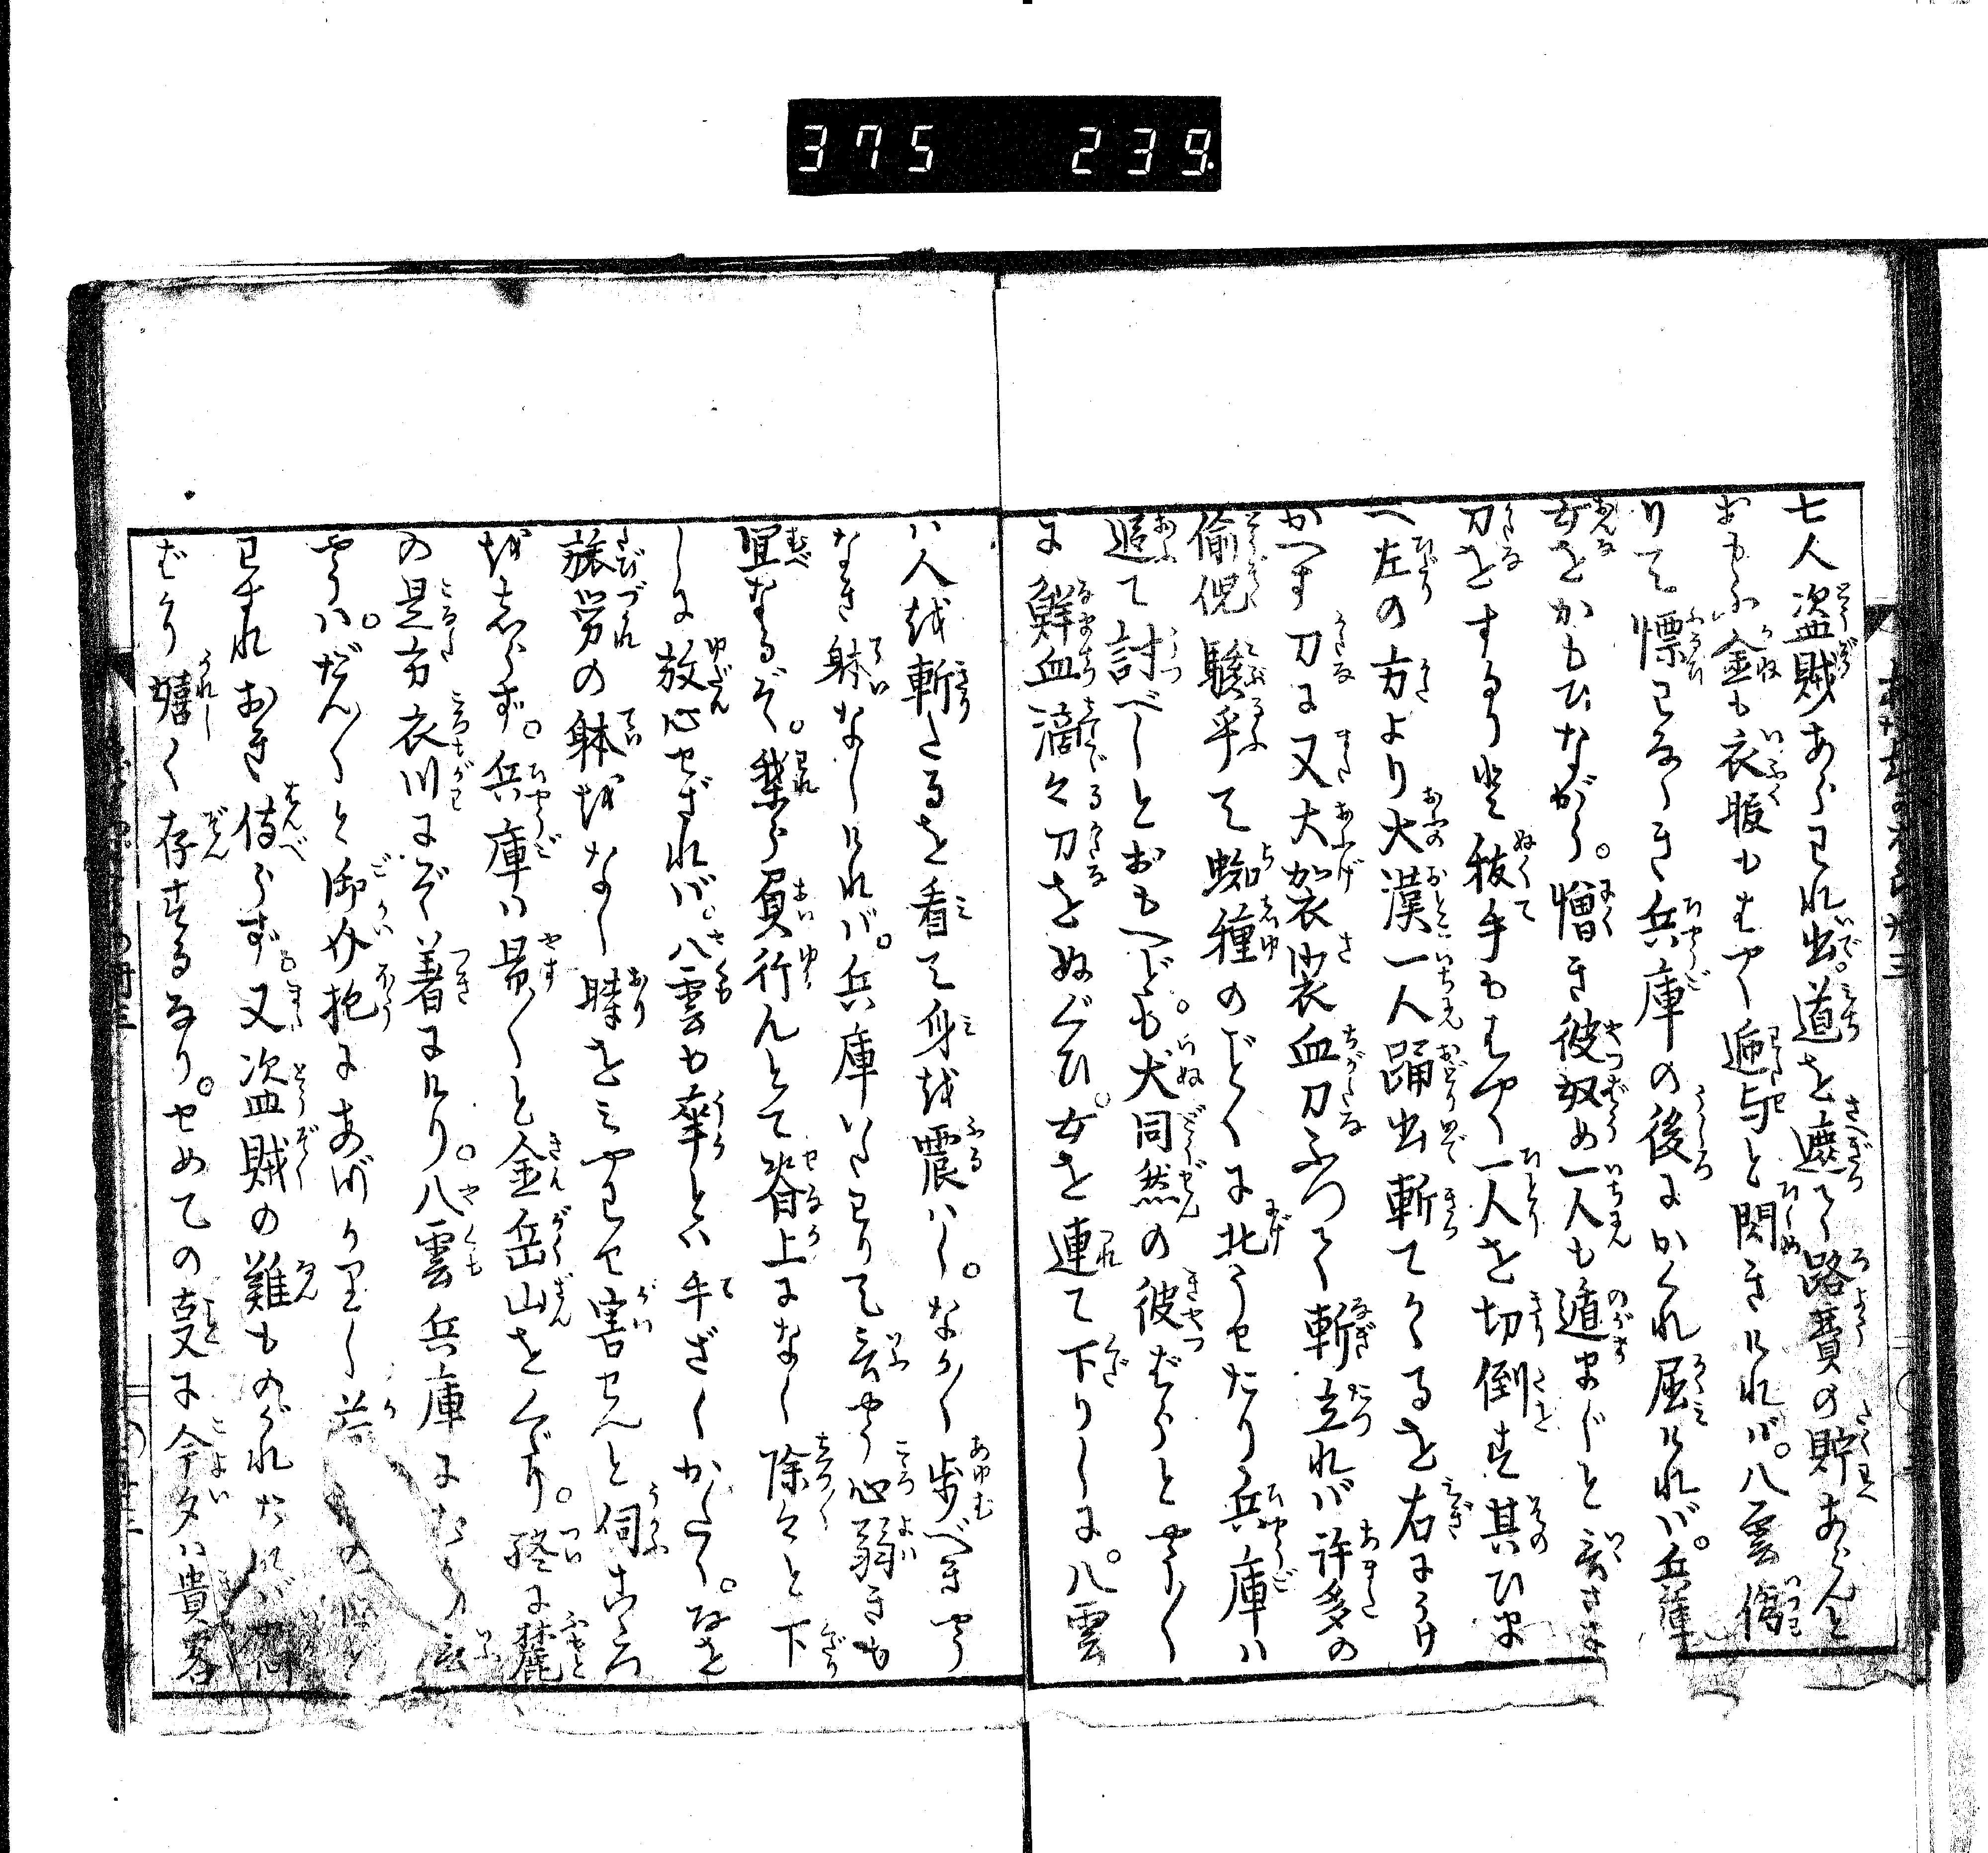 375 239
七人盗賊あらはれ出。道を遮て路費の貯あらんと
おもふ金も衣服もはやく逓与と閃きければ。八雲偽
りて慓わなゝき兵庫の後にかくれ屈ければ。兵庫
女をかもひながら。憎き彼奴め一人も遁すまじと言さま
刀をするりと抜手もはやく一人を切倒す其ひま
へ左の方より大漢一人踊出斬てかゝるを右にうけ
かへす刀に又大袈裟血刀ふつて斬立れば許多の
偷児駿乎て蜘種のごとくに北うせたり兵庫は
追て討べしとおもへども。犬同然の彼ばらとやう〳〵
に鮮血滴々刀をぬぐひ。女を連て下りしに。八雲
は人を斬たるを看て身を震はし。なか〳〵歩べきやう
なき躰なしければ。兵庫いたわりて言やう心弱きも
宜なるぞ。某負行んとて脊上になし除々と下
しに放心せざれば。八雲も卒とは手ざしかたく。なを
旅労の躰をなし睦をみやわせ害せんと伺ふ
をしらず。兵庫は易〳〵と金岳山をくだり。終に麓
の是方衣川にぞ着にけり。八雲兵庫にむかひ言
やうは。だん〳〵と御介抱にあづかりし
わすれおき侍らず。又盗賊の難ものがれたれば
ばかり嬉く存ずるなり。せめての事に今夕は貴客